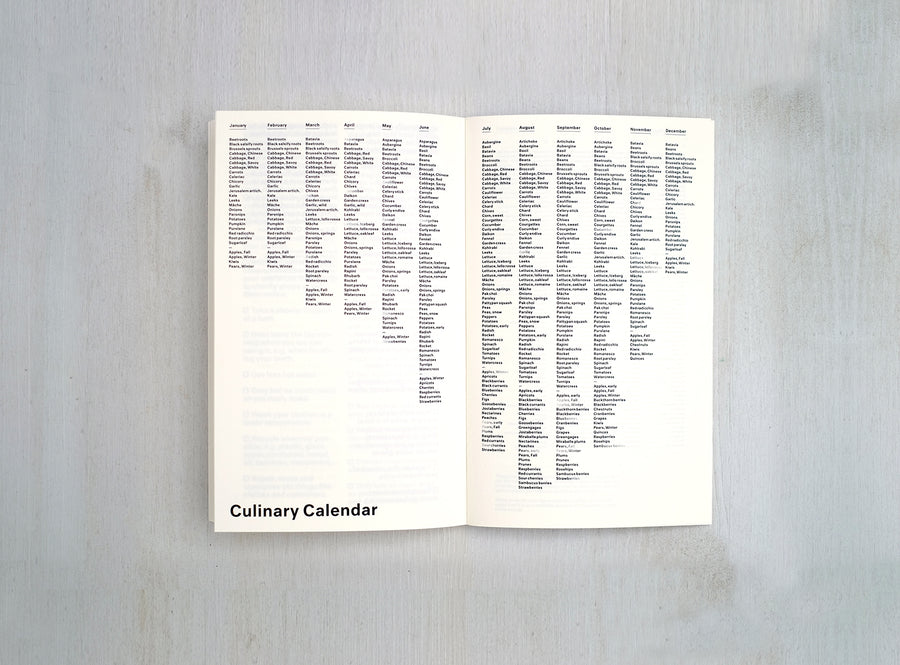 January
Beetroots
Black salsify roots
Brussels sprouts
Cabbage, Chinese
Cabbage, Red
Cabbage, Savoy
Cabbage, White
Carrots
Celeriac
Chicory
Garlic
Jerusalem artich.
Kale
Leeks
Mâche
Onions
Parsnips
Pumpkin
Purslane
Red radicchio
Root parsley
Sugarloaf
—
Apples, Fall
Apples, Winter
Kiwis
Pears, Winter
February
Beetroots
Black salsify roots
Brussels sprouts
Cabbage, Chinese
Cabbage, Red
Cabbage, Savoy
Cabbage, White
Carrots
Celeriac
Chicory
Garlic
Jerusalem artich.
Kale
Leeks
Mâche
Onions
Parsnips
Potatoes
Purslane
Red radicchio
Root parsley
Sugarloaf
—
Apples, Fall
Apples, Winter
Kiwis
Pears, Winter
March
Batavia
Beetroots
Black salsify roots
Brussels sprouts
Cabbage, Chinese
Cabbage, Red
Cabbage, Savoy
Cabbage, White
Carrots
Celeriac
Chicory
Chives
Garden cress
Garlic, wild
Jerusalem artich.
Leeks
Lettuce, lollo rossa
Mâche
Onions
Onions, springs
Parsley
Parsnips
Potatoes
Purslane
Red radicchio
Rocket
Root parsley
Spinach
Watercress
—
Apples, Fall
Apples, Winter
Kiwis
Pears, Winter
April
Asparagus
Batavia
Beetroots
Cabbage, Red
Cabbage, Savoy
Cabbage, White
Carrots
Celeriac
Chard
Chicory
Chives
Daikon
Garden cress
Garlic, wild
Kohlrabi
Leeks
Lettuce
Lettuce, Iceberg
Lettuce, lollo rossa
Lettuce, oakleaf
Mâche
Onions
Onions, springs
Parsley
Parsnips
Potatoes
Purslane
Radish
Rapini
Rhubarb
Rocket
Root parsley
Spinach
Watercress
—
Apples, Fall
Apples, Winter
Pears, Winter
May
Asparagus
Aubergine
Batavia
Beetroots
Broccoli
Cabbage, Chinese
Cabbage, Red
Cabbage, White
Carrots
Cauliflower
Celeriac
Celery stick
Chard
Chives
Cucumber
Curly endive
Daikon
Fennel
Garden cress
Kohlrabi
Leeks
Lettuce
Lettuce, Iceberg
Lettuce, lollo rossa
Lettuce, oakleaf
Lettuce, romaine
Mâche
Onions
Onions, springs
Pak choi
Parsley
Potatoes
Radish
Rapini
Rhubarb
Rocket
Romanesco
Spinach
Turnips
Watercress
—
Apples, Winter
June
Asparagus
Aubergine
Basil
Batavia
Beans
Beetroots
Broccoli
Cabbage, Chinese
Cabbage, Red
Cabbage, Savoy
Cabbage, White
Carrots
Cauliflower
Celeriac
Celery stick
Chard
Chives
Courgettes
Cucumber
Curly endive
Daikon
Fennel
Garden cress
Kohlrabi
Leeks
Lettuce
Lettuce, Iceberg
Lettuce, lollo rossa
Lettuce, oakleaf
Lettuce, romaine
Mâche
Onions
Onions, springs
Pak choi
Parsley
Peas
Peas, snow
Peppers
Potatoes
Potatoes, early
Radish
Rapini
Rhubarb
Rocket
Romanesco
Spinach
Tomatoes
Turnips
Watercress
—
Apples, Winter
Apricots
Cherries
Raspberries
Red currants
Strawberries
July
Aubergine
Basil
Batavia
Beans
Beetroots
Broccoli
Cabbage, Chinese
Cabbage, Red
Cabbage, Savoy
Cabbage, White
Carrots
Cauliflower
Celeriac
Celery stick
Chard
Chives
Corn, sweet
Courgettes
Cucumber
Curly endive
Daikon
Fennel
Garden cress
Kohlrabi
Leeks
Lettuce
Lettuce, Iceberg
Lettuce, lollo rossa
Lettuce, oakleaf
Lettuce, romaine
Mâche
Onions
Onions, springs
Pak choi
Parsley
Pattypan squash
Peas
Peas, snow
Peppers
Potatoes
Potatoes, early
Radish
Rocket
Romanesco
Spinach
Sugarloaf
Tomatoes
Turnips
Watercress
—
Apples, Winter
Apricots
Blackberries
Black currants
Blueberries
Cherries
Figs
Gooseberries
Jostaberries
Nectarines
Peaches
Pears, early
Pears, Fall
Plums
Raspberries
Red currants
Sour cherries
Strawberries
August
Artichoke
Aubergine
Basil
Batavia
Beans
Beetroots
Broccoli
Cabbage, Chinese
Cabbage, Red
Cabbage, Savoy
Cabbage, White
Carrots
Cauliflower
Celeriac
Celery stick
Chard
Chives
Corn, sweet
Courgettes
Cucumber
Curly endive
Daikon
Fennel
Garden cress
Kohlrabi
Leeks
Lettuce
Lettuce, Iceberg
Lettuce, lollo rossa
Lettuce, oakleaf
Lettuce, romaine
Mâche
Onions
Onions, springs
Pak choi
Parsley
Pattypan squash
Peas
Peas, snow
Peppers
Potatoes
Pumpkin
Radish
Red radicchio
Rocket
Romanesco
Spinach
Sugarloaf
Tomatoes
Turnips
Watercress
—
Apples, early
Apricots
Blackberries
Black currants
Blueberries
Cherries
Figs
Gooseberries
Greengages
Jostaberries
Mirabelle plums
Nectarines
Peaches
Pears, early
Pears, Fall
Plums
Prunes
Raspberries
Red currants
Sour cherries
Sambucus berries
Strawberries
September
Artichoke
Aubergine
Basil
Batavia
Beans
Beetroots
Broccoli
Brussels sprouts
Cabbage, Chinese
Cabbage, Red
Cabbage, Savoy
Cabbage, White
Carrots
Cauliflower
Celeriac
Celery stick
Chard
Chives
Corn, sweet
Courgettes
Cucumber
Curly endive
Daikon
Fennel
Garden cress
Garlic
Kohlrabi
Leeks
Lettuce
Lettuce, Iceberg
Lettuce, lollo rossa
Lettuce, oakleaf
Lettuce, romaine
Mâche
Onions
Onions, springs
Pak choi
Parsley
Parsnips
Pattypan squash
Peppers
Potatoes
Pumpkin
Purslane
Radish
Rapini
Red radicchio
Rocket
Romanesco
Root parsley
Spinach
Sugarloaf
Tomatoes
Turnips
Watercress
—
Apples, early
Apples, Fall
Apples, Winter
Buckthorn berries
Blackberries
Blueberries
Cranberries
Figs
Grapes
Greengages
Mirabelle plums
Nectarines
Pears, Fall
Pears, Winter
Plums
Prunes
Raspberries
Rosehips
Sambucus berries
Strawberries
October
Artichoke
Aubergine
Batavia
Beans
Beetroots
Black salsify roots
Broccoli
Brussels sprouts
Cabbage, Chinese
Cabbage, Red
Cabbage, Savoy
Cabbage, White
Carrots
Cauliflower
Celeriac
Celery stick
Chard
Chives
Corn, sweet
Courgettes
Cucumber
Curly endive
Daikon
Fennel
Garden cress
Garlic
Jerusalem artich.
Kohlrabi
Leeks
Lettuce
Lettuce, Iceberg
Lettuce, lollo rossa
Lettuce, oakleaf
Lettuce, romaine
Mâche
Onions
Onions, springs
Pak choi
Parsley
Parsnips
Peppers
Potatoes
Pumpkin
Purslane
Radish
Rapini
Red radicchio
Rocket
Romanesco
Root parsley
Spinach
Sugarloaf
Tomatoes
Turnips
Watercress
—
Apples, early
Apples, Fall
Apples, Winter
Buckthorn berries
Blackberries
Chestnuts
Cranberries
Grapes
Kiwis
Pears, Winter
Quinces
Raspberries
Rosehips
Sambucus berries
November
Batavia
Beans
Beetroots
Black salsify roots
Broccoli
Brussels sprouts
Cabbage, Chinese
Cabbage, Red
Cabbage, Savoy
Cabbage, White
Carrots
Cauliflower
Celeriac
Chard
Chicory
Chives
Curly endive
Daikon
Fennel
Garden cress
Garlic
Jerusalem artich.
Kale
Kohlrabi
Leeks
Lettuce
Lettuce, lollo rossa
Mâche
Onions
Pak choi
Parsley
Parsnips
Potatoes
Pumpkin
Purslane
Red radicchio
Romanesco
Root parsley
Spinach
Sugarloaf
—
Apples, Fall
Apples, Winter
Chestnuts
Kiwis
Pears, Winter
Quinces
December
Batavia
Beetroots
Black salsify roots
Brussels sprouts
Cabbage, Chinese
Cabbage, Red
Cabbage, Savoy
Cabbage, White
Carrots
Celeriac
Chicory
Garlic
Jerusalem artich.
Kale
Leeks
Mâche
Onions
Parsnips
Potatoes
Pumpkin
Purslane
Red radicchio
Root parsley
Sugarloaf
—
Apples, Fall
Apples, Winter
Kiwis
Pears, Winter
Culinary Calendar